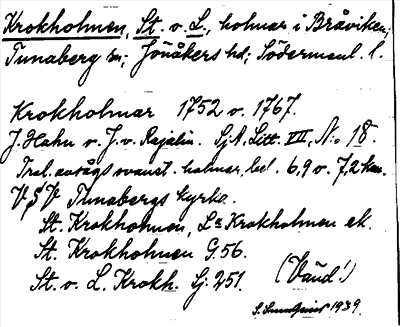 Krokholmen, St. o. L., holmar i Bråviken;
Tunaberg sn; Jönåkers hd; Södermanl. l.
Krokholmar 1752 o. 1767.
J. Hahn o. J. v. Rajalin. SjA Litt. VII, No 18.
holmar, bel. 6,9 o. 7,2 km.
V. S V Tunabergs kyrka.
St. Krokholmen, La Krokholmen ek.
St. Krokholmen G. 56.
St. o. L. Krokh. Sj. 251.
S. 1939.